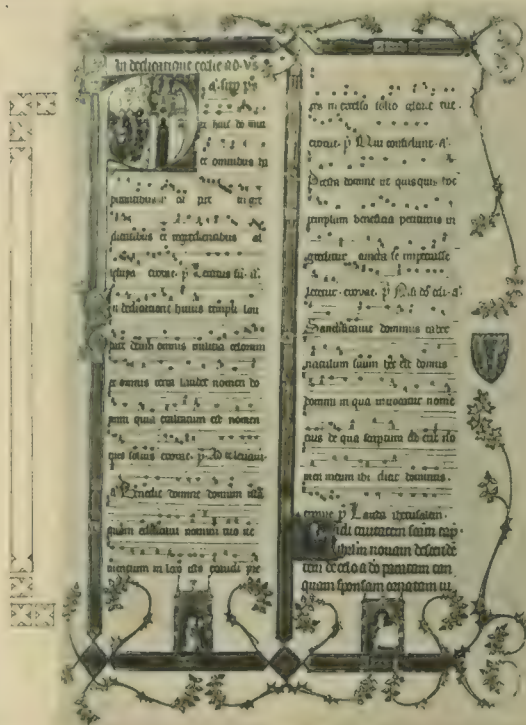 In dedicatione ecclie ad vs
a. sup ps
et huic do mui
et omnibus ha
bitantibus i ea pax in gre
dientibus et regredientibus al
leluya euouae. p Letatus su. a.
In dedicatione huius templi lau
date deum omnis militia celorum
et omnis terra laudet nomen do
mini quia exaltatum est nomen
eius solius euouae. p Ad te leuaui.
a Benedic domine domum istā
quam edificaui nomini tuo ue
nientium in loco isto exaudi pre
ces in excelso solio glorie tue.
euouae. p Qui confidunt. a.
Presta domine ut quisquis hoc
templum beneficia petiturus in
greditur cuncta se impetrasse
letetur. euouae. p Nisi dns edi. a.
Sanctificauit dominus taber
naculum suum hec est domus
domini in qua inuocatur nomē
eius de qua scriptum est erit nō
men meum ibi dicit dominus.
euouae p Lauda iherusalem.
Vidi ciuitatem sanctam
iherlm nouam descendē
tem de celo a do paratam tan
quam sponsam ornatam ui